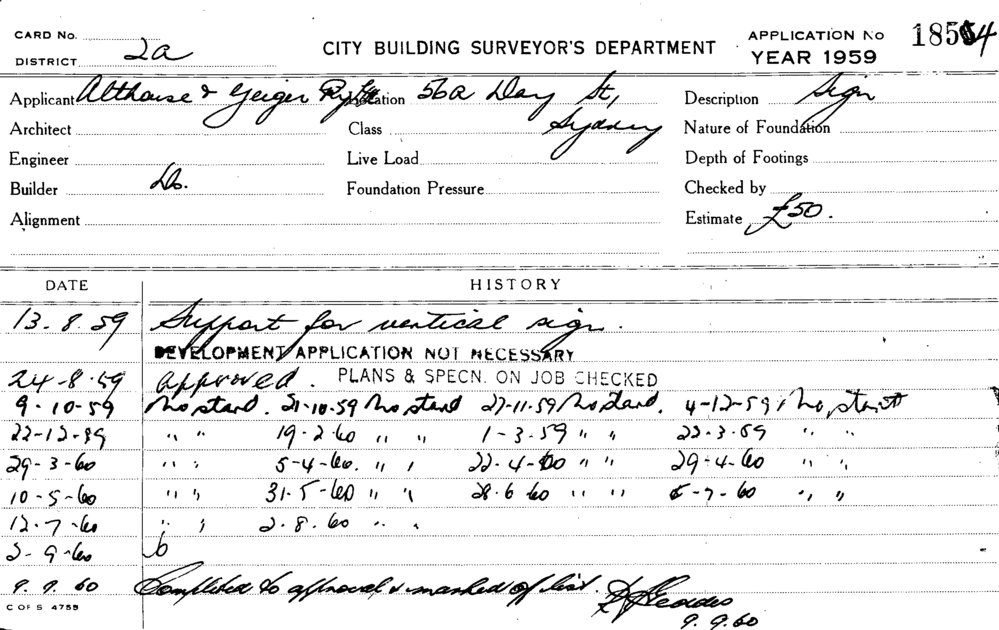 CARD No.
DISTRICT 2a
CITY BUILDING SURVEYOR'S DEPARTMENT
APPLICATION No 18554
YEAR 1959
Applicant Althouse & Geiger Pty Location 56a Day St, Description Sign
Architect Class Sydney Nature of Foundation
Engineer Live Load Depth of Footings
Builder Do. Foundation Pressure Checked by
Alignment Estimate £50.
DATE HISTORY
13.8.59 Support for vertical sign.
DEVELOPMENT APPLICATION NOT NECESSARY
24-8-59 approved. PLANS & SPECN. ON JOB CHECKED
9-10-59 No start. 21-10-59 No start 27-11-59 No start. 4-12-59 No start
22-12-59 " " 19-2-60 " " 1-3-59 " " 22-3-59 " "
29-3-60 " " 5-4-60. " " 22-4-60 " " 29-4-60 " "
10-5-60 " " 31-5-60 " " 28.6.60 " " 5-7-60 " "
12-7-60 " " 2.8.60 " "
2-9-60
9.9.60 Completed to approval & marked of list.
9.9.60
C OF S 4755